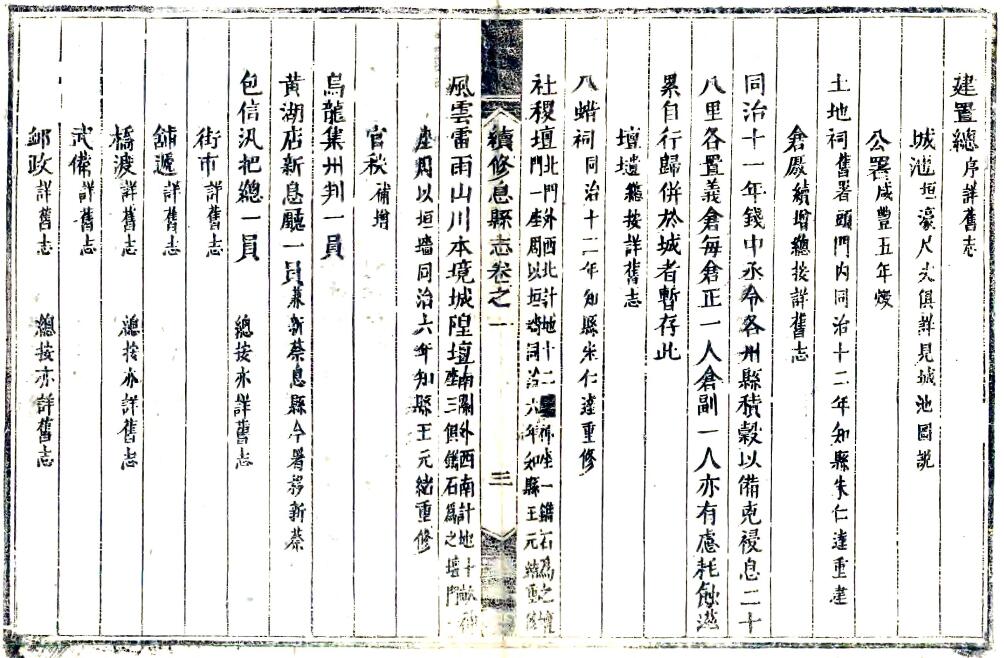 建置總序詳舊志
城池垣濠尺丈俱詳見城池圖說
公署咸豐五年燬
土地祠舊署頭門內同治十二年知縣朱仁達重建
倉廒續增總按詳舊志
同治十一年錢中丞令各州縣積穀以備兇祲息二十
八里各置義倉每倉正一人倉副一人亦有慮耗蝕滋
累自行歸併於城者暫存此
壇壝總按詳舊志
八蜡祠同治十二年知縣朱仁達重修
社稷壇北門外西北計地十二 神座一鐫石為之壇
門一座周以垣墻同治六年知縣王元緒重修
續修息縣志卷之一 三
風雲雷雨山川本境城隍壇南關外西南計地十畝神
座三俱鐫石為之壇門
一座周以垣墻同治六年知縣王元緒重修
官秩補增
烏龍集州判一員
黃湖店新息廳一員兼新蔡息縣今署移新蔡
包信汛把總一員 總按亦詳舊志
街市詳舊志
舖遞詳舊志
橋渡詳舊志 總按亦詳舊志
武備詳舊志
郵政詳舊志 總按亦詳舊志